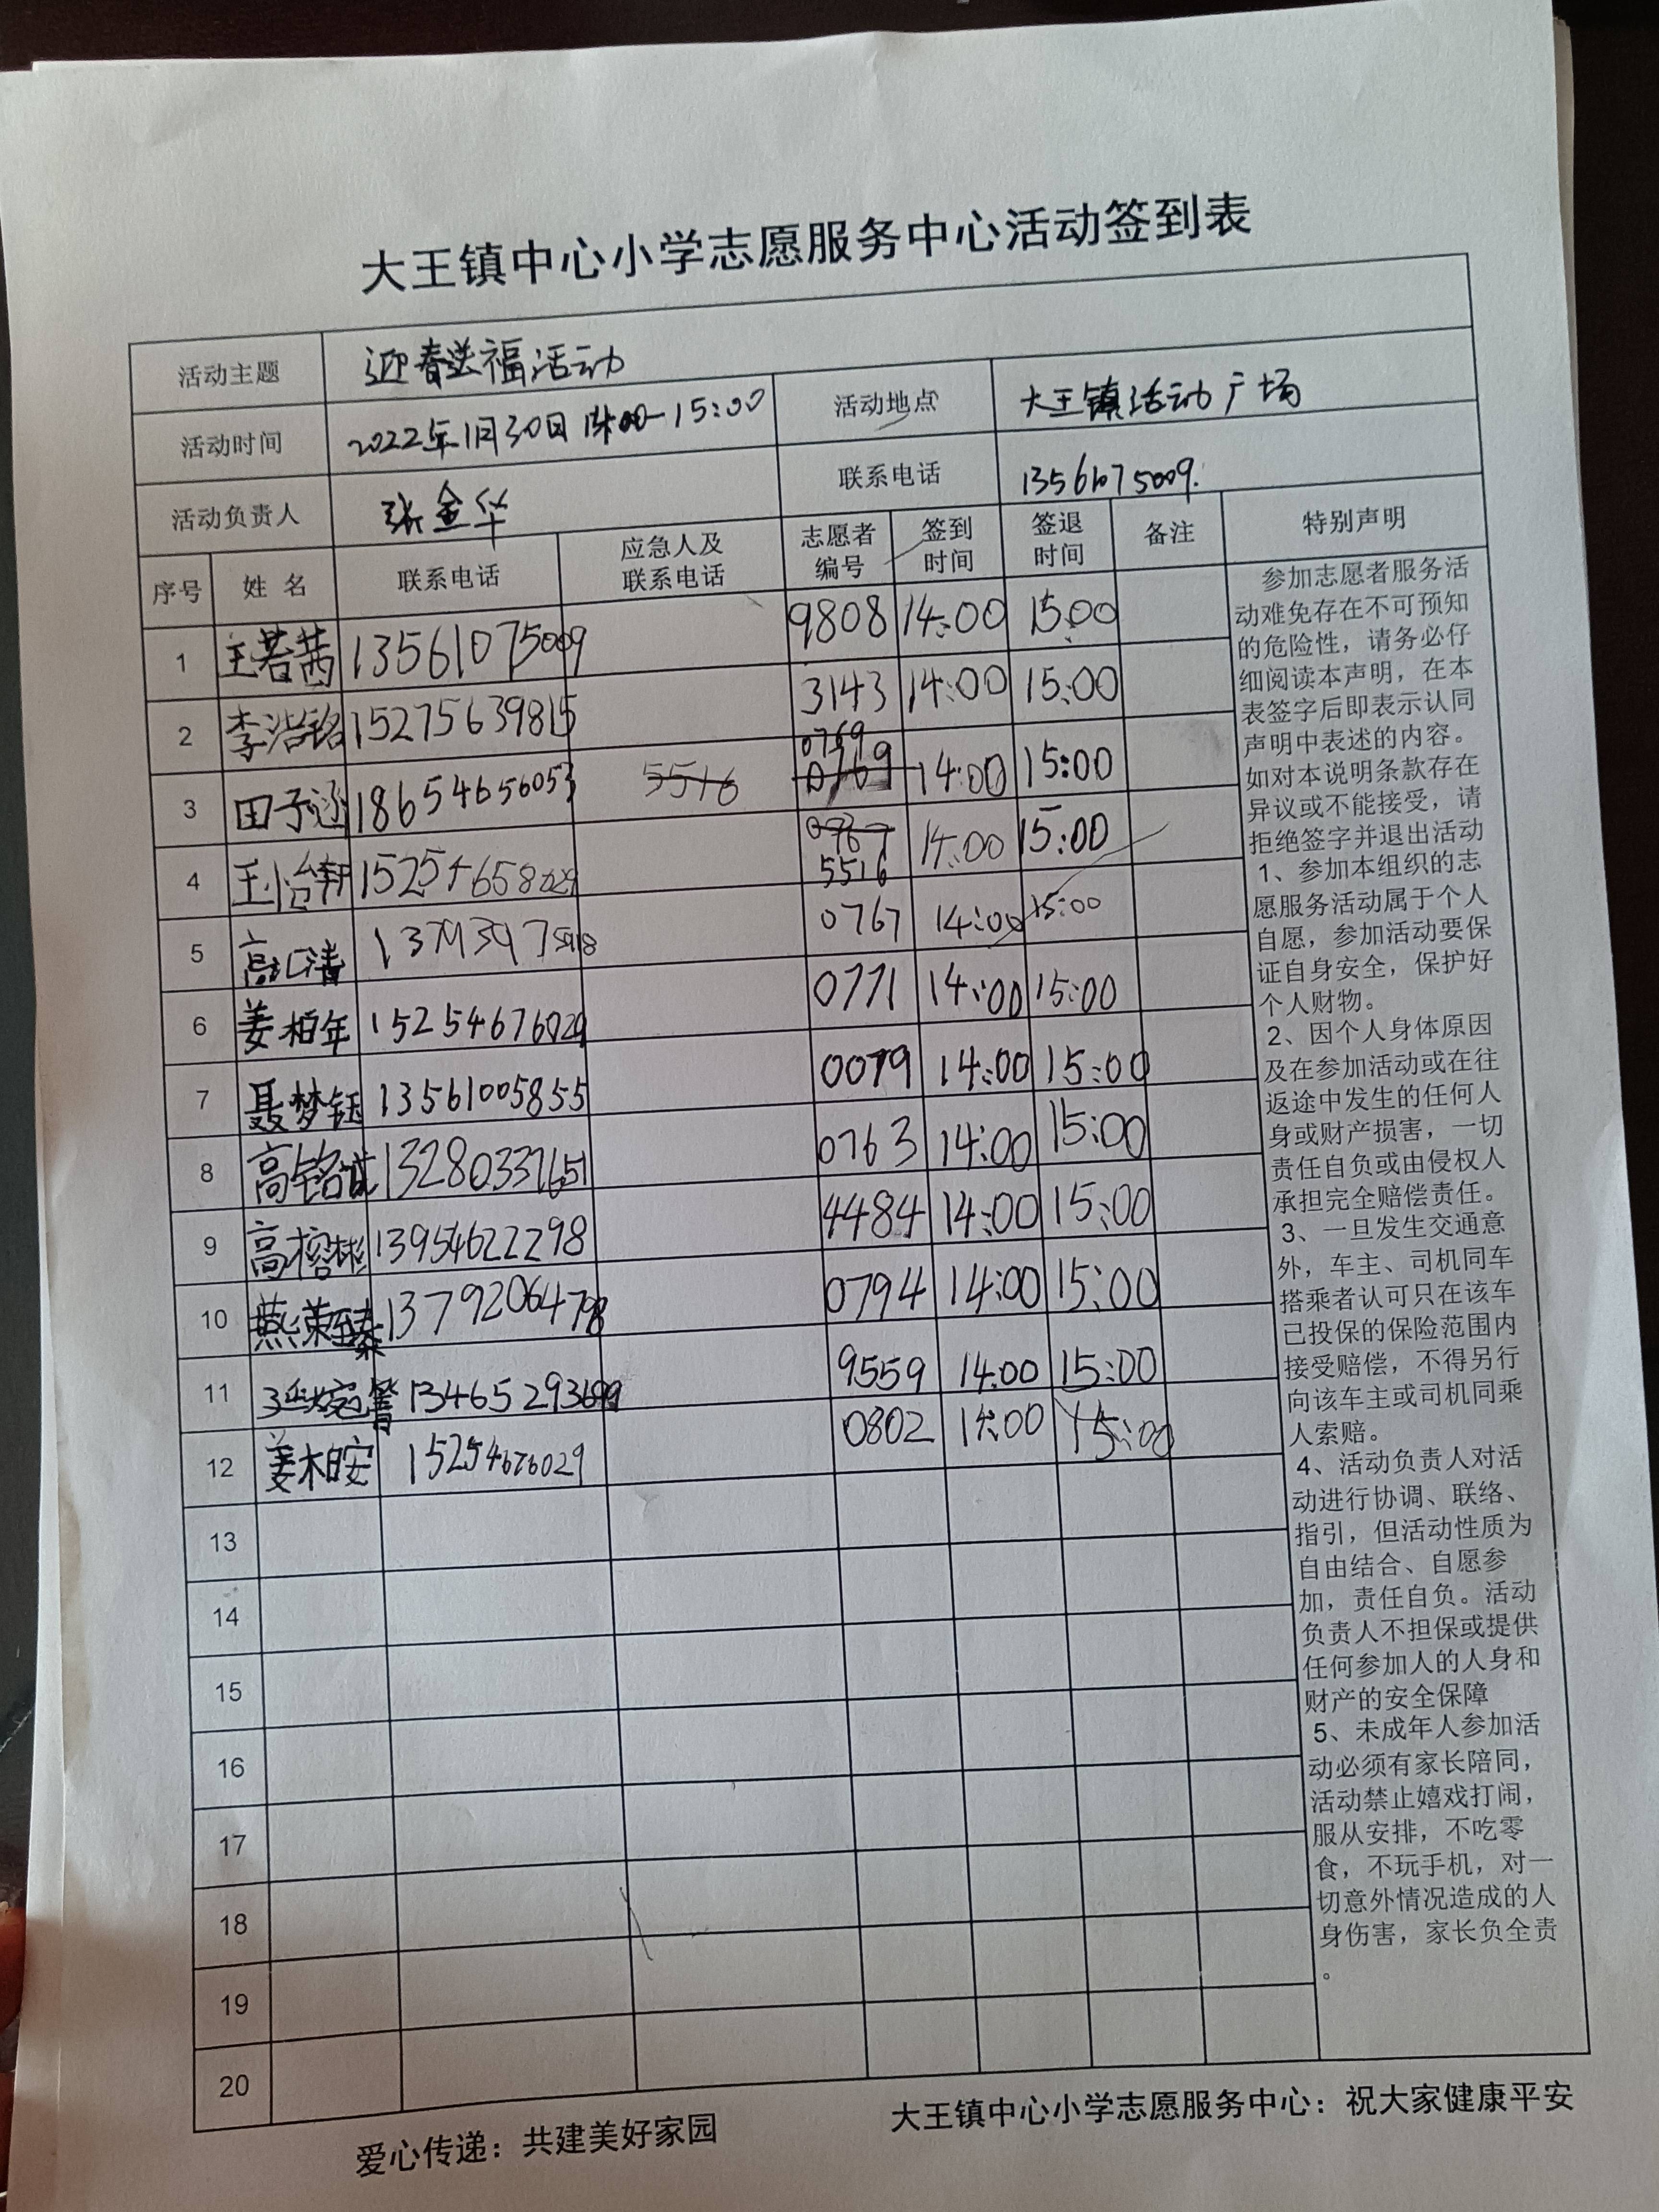 大王镇中心小学志愿服务中心活动签到表
活动主题 迎春送福活动
活动时间 2022年1月30日 14:00-15:00 活动地点 大王镇活动广场
活动负责人 张金华 联系电话 13561075009.
序号 姓 名 联系电话 应急人及联系电话 志愿者编号 签到时间 签退时间 备注 特别声明
1 王若茜 13561075009 9808 14:00 15:00
2 李浩铭 15275639815 3143 14:00 15:00
3 田子涵 18654656053 5516 0769 0769 14:00 15:00
4 王怡翔 5516 14:00 15:00
5 高 清 0767 14:00 15:00
6 姜柏年 15254676029 0771 14:00 15:00
7 聂梦钰 13561005855 0079 14:00 15:00
8 高铭诚 13280337651 0763 14:00 15:00
9 高榕彬 13954622298 4484 14:00 15:00
10 燕荣臻 13792064798 0794 14:00 15:00
11 延婉 9559 14:00 15:00
12 姜木安 15254676029 0802 14:00 15:00
13
14
15
16
17
18
19
20
参加志愿者服务活
动难免存在不可预知
的危险性，请务必仔
细阅读本声明，在本
表签字后即表示认同
声明中表述的内容。
如对本说明条款存在
异议或不能接受，请
拒绝签字并退出活动
1、参加本组织的志
愿服务活动属于个人
自愿，参加活动要保
证自身安全，保护好
个人财物。
2、因个人身体原因
及在参加活动或在往
返途中发生的任何人
身或财产损害，一切
责任自负或由侵权人
承担完全赔偿责任。
3、一旦发生交通意
外，车主、司机同车
搭乘者认可只在该车
已投保的保险范围内
接受赔偿，不得另行
向该车主或司机同乘
人索赔。
4、活动负责人对活
动进行协调、联络、
指引，但活动性质为
自由结合、自愿参
加，责任自负。活动
负责人不担保或提供
任何参加人的人身和
财产的安全保障
5、未成年人参加活
动必须有家长陪同，
活动禁止嬉戏打闹，
服从安排，不吃零
食，不玩手机，对一
切意外情况造成的人
身伤害，家长负全责
。
爱心传递：共建美好家园 大王镇中心小学志愿服务中心：祝大家健康平安